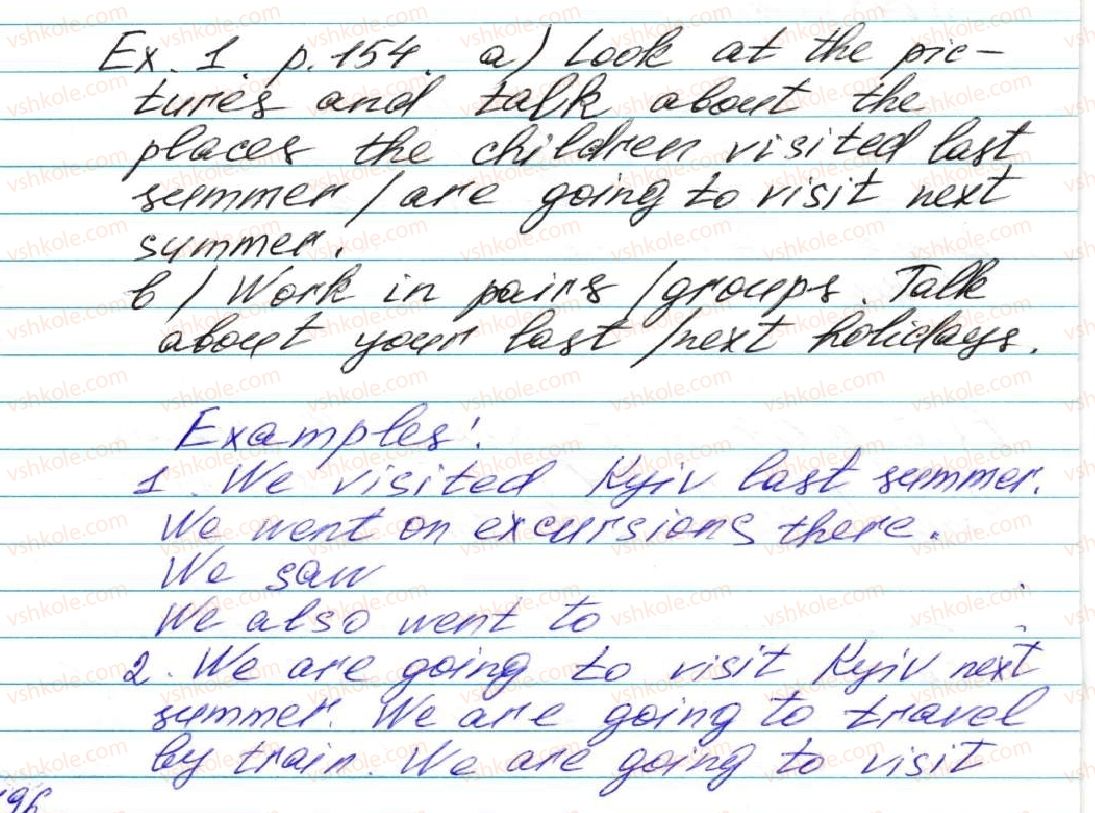 Ex. 1. p. 154. a) Look at the pic-
tures and talk about the
places the children visited last
summer / are going to visit next
summer.
b) Work in pairs / groups. Talk
about your last / next holidays.
Examples:
1. We visited Kyiv last summer.
We went on excursions there.
We saw .
We also went to .
2. We are going to visit Kyiv next
summer. We are going to travel
by train. We are going to visit
196
vshkole.com